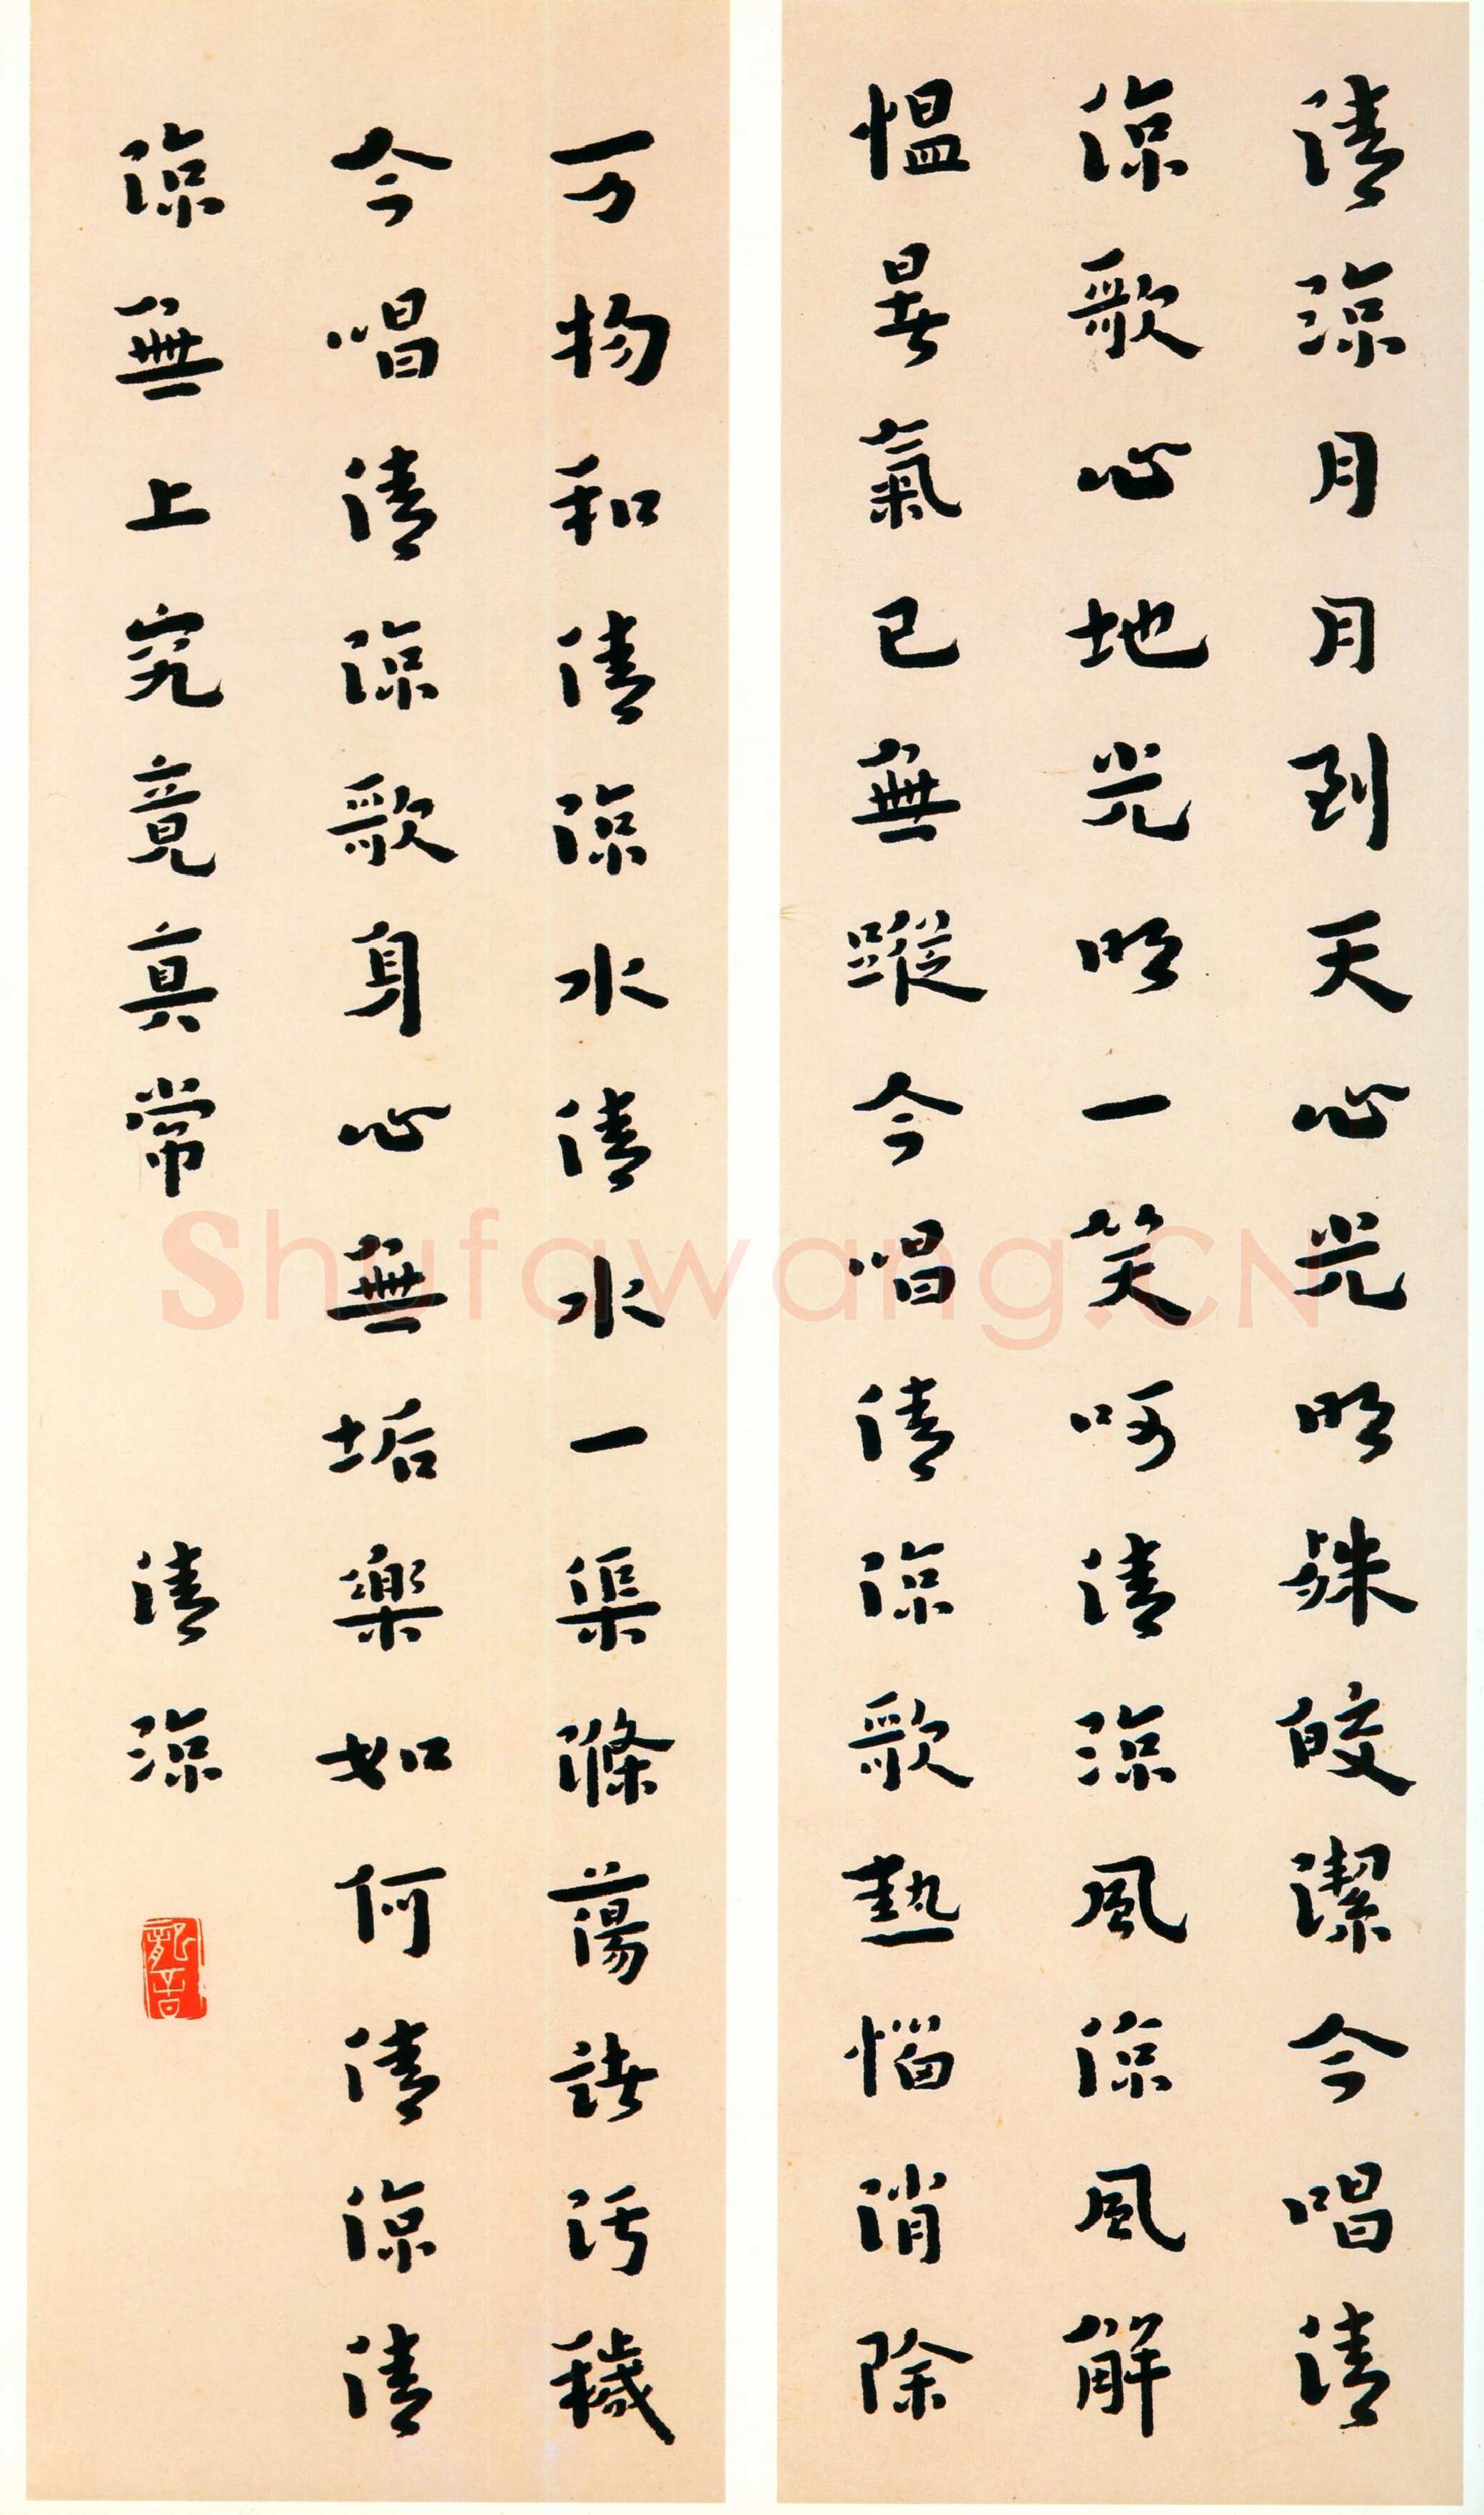 清涼月月到天心光明殊皎潔今唱清
涼歌心地光明一笑呵清涼風涼風解
愠暑氣已無蹤今唱清涼歌熱惱消除
万物和清涼水清水一渠滌蕩諸污穢
今唱清涼歌身心無垢樂如何清涼清
涼無上究竟真常 清涼
龍音
Shufawang.CN